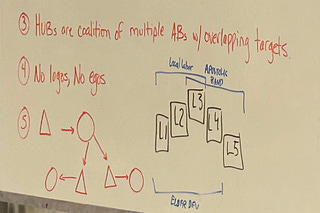 ③ HUBs are coalition of multiple ABs w/ overlapping targets.
④ No logos, No egos
⑤
Local labor
APOSTOLIC
BAND
L1
L2
L3
L4
L5
ELDER DEV